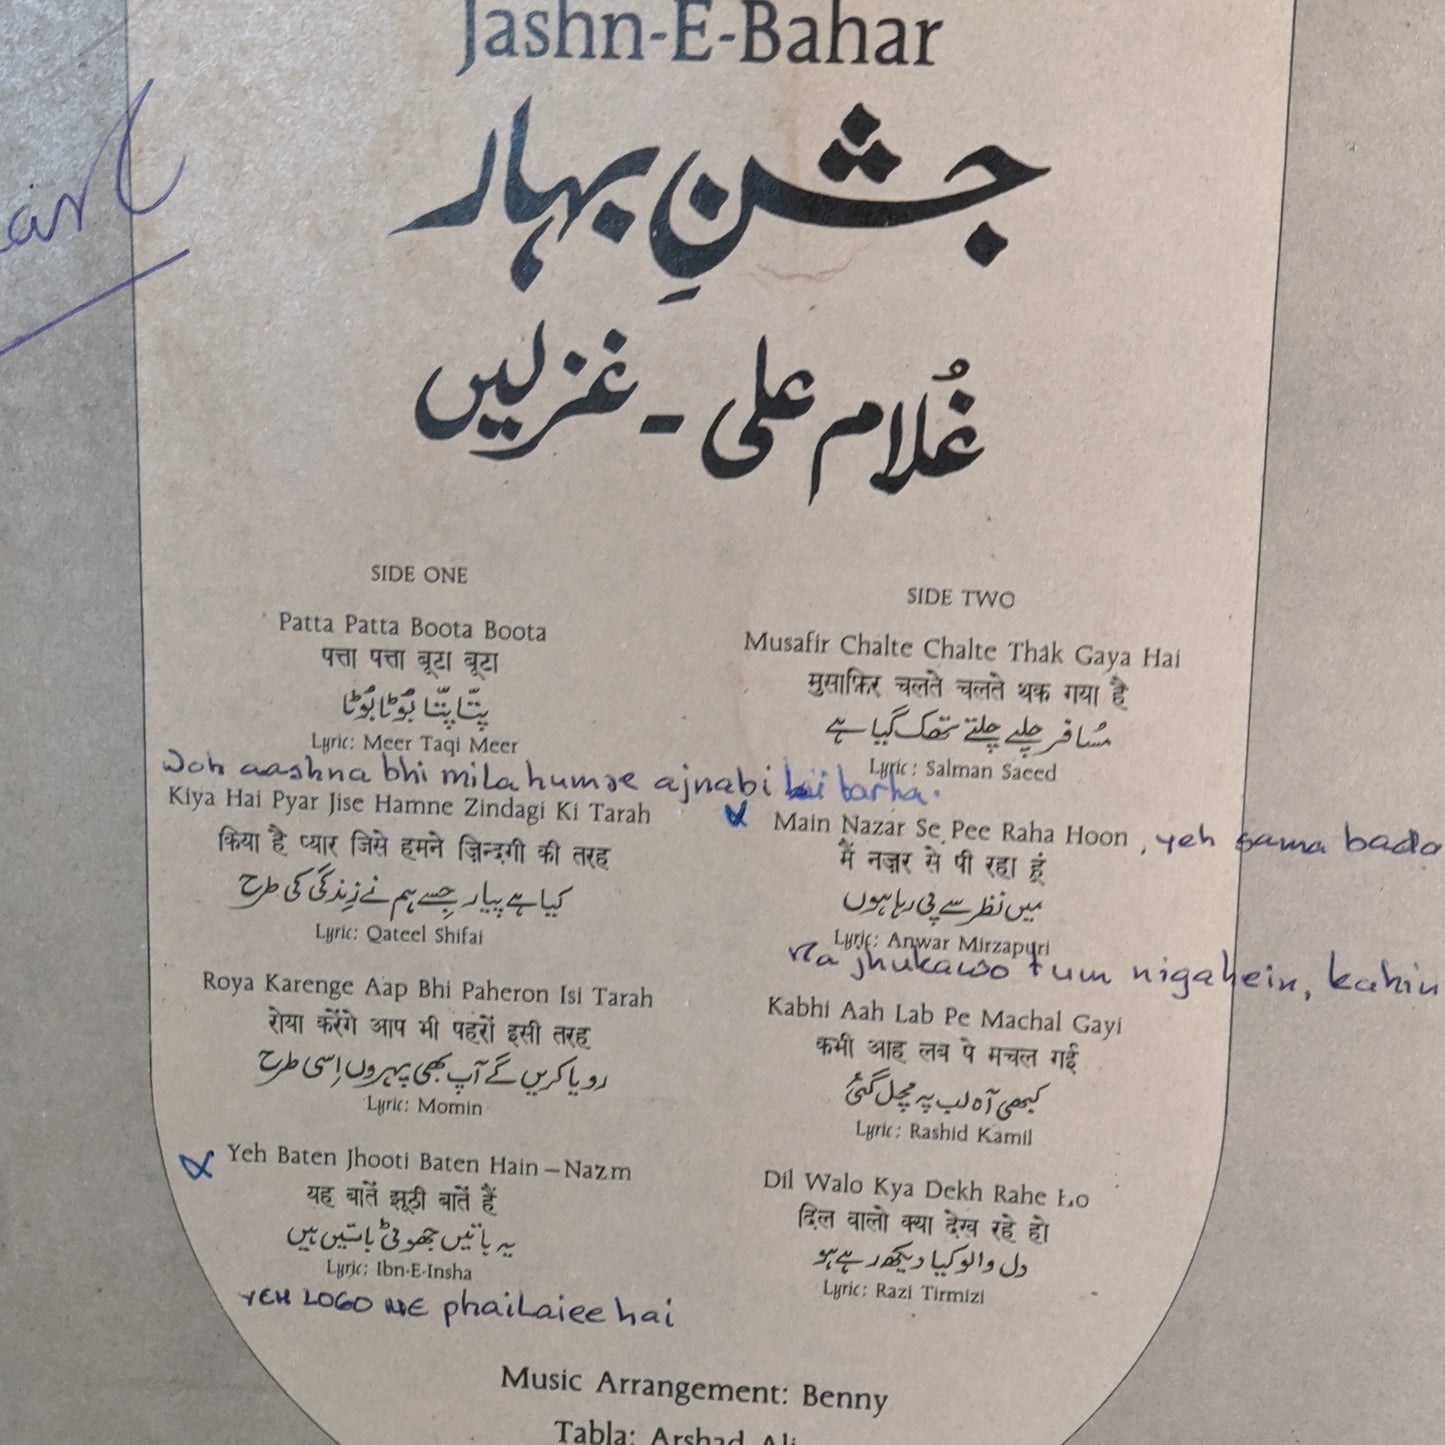 Jashn-E-Bahar
جشنِ بہار
غُلام علی - غزلیں
SIDE ONE
Patta Patta Boota Boota
पत्ता पत्ता बूटा बूटा
پتّا پتّا بُوٹا بُوٹا
Lyric: Meer Taqi Meer
Woh aashna bhi mila humse ajnabi ki tarha.
Kiya Hai Pyar Jise Hamne Zindagi Ki Tarah
किया है प्यार जिसे हमने ज़िन्दगी की तरह
کیا ہے پیار جِسے ہم نے زِندگی کی طرح
Lyric: Qateel Shifai
Roya Karenge Aap Bhi Paheron Isi Tarah
रोया करेंगे आप भी पहरों इसी तरह
رویا کریں گے آپ بھی پہروں اِسی طرح
Lyric: Momin
Yeh Baten Jhooti Baten Hain – Nazm
यह बातें झूठी बातें हैं
یہ باتیں جھوٹی باتیں ہیں
Lyric: Ibn-E-Insha
YEH LOGO NE phailaiee hai
SIDE TWO
Musafir Chalte Chalte Thak Gaya Hai
मुसाफ़िर चलते चलते थक गया है
مُسافر چلتے چلتے تھک گیا ہے
Lyric: Salman Saeed
Main Nazar Se Pee Raha Hoon , yeh sama bada
मैं नज़र से पी रहा हूं
میں نظر سے پی رہا ہوں
Lyric: Anwar Mirzapuri
Na jhukawo tum nigahein, kahin
Kabhi Aah Lab Pe Machal Gayi
कभी आह लब पे मचल गई
کبھی آہ لب پہ مچل گئی
Lyric: Rashid Kamil
Dil Walo Kya Dekh Rahe Ho
दिल वालो क्या देख रहे हो
دل والو کیا دیکھ رہے ہو
Lyric: Razi Tirmizi
Music Arrangement: Benny
Tabla: Arshad Ali